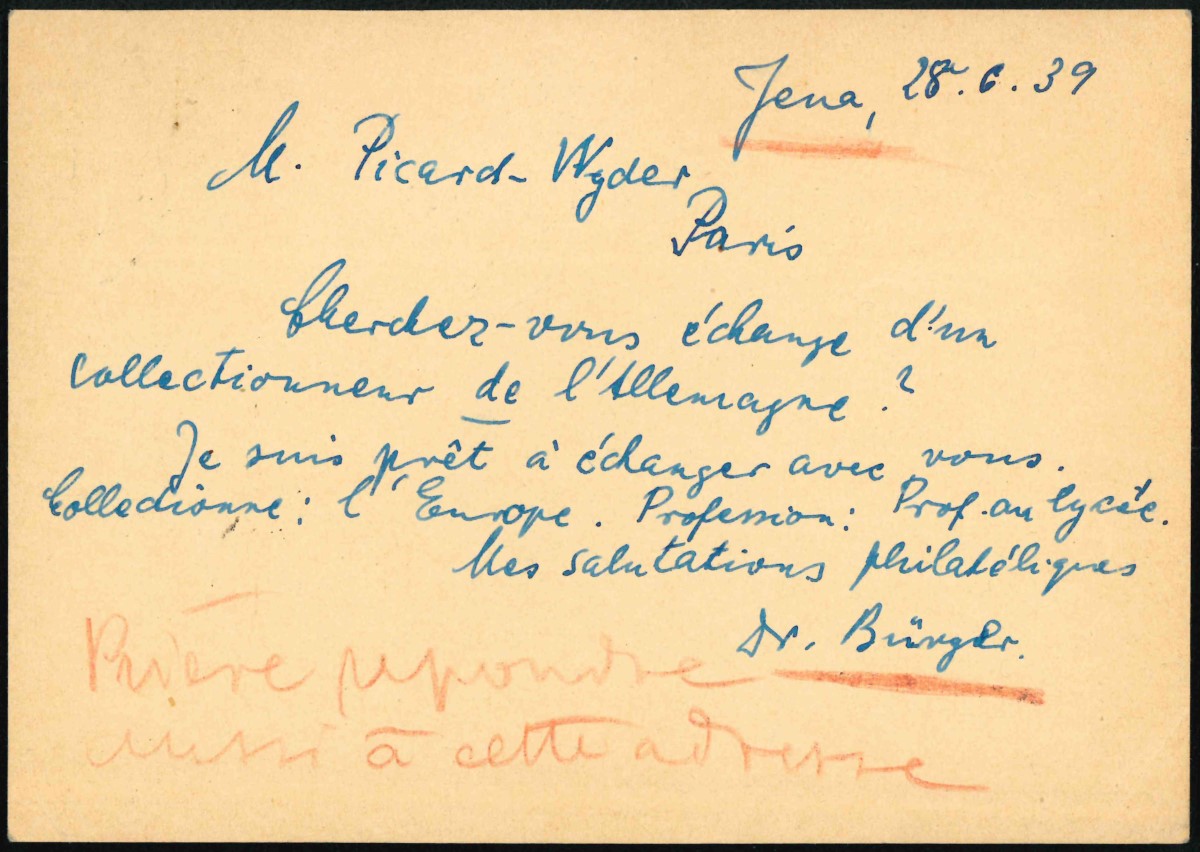 Jena, 28.6.39
M. Picard-Wyder
Paris
Cherchez-vous échange d'un
collectionneur de l'Allemagne?
Je suis prêt à échanger avec vous.
Collectionne: l'Europe. Profession: Prof. au lycée.
Mes salutations philatéliques
Dr. Bürger.
Prière repondre
aussi à cette adresse